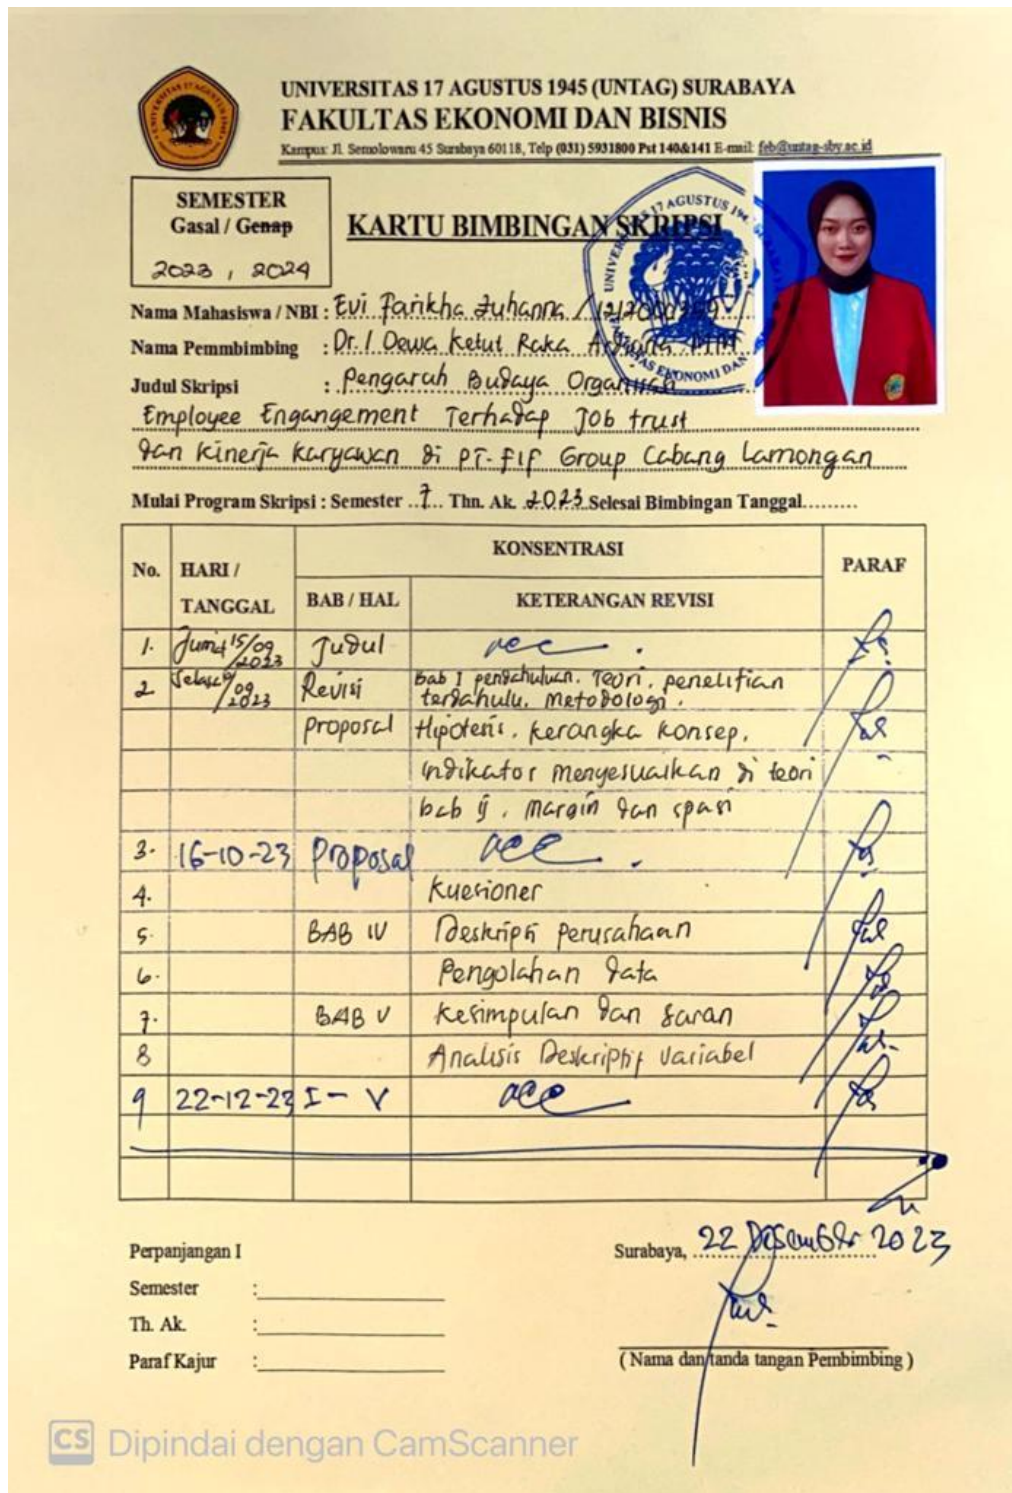 UNIVERSITAS 17 AGUSTUS 1945 (UNTAG) SURABAYA
FAKULTAS EKONOMI DAN BISNIS
Kampus: Jl. Semolowaru 45 Surabaya 60118, Telp (031) 5931800 Pst 140&141 E-mail: feb@untag-sby.ac.id
SEMESTER
Gasal / Genap
2023 , 2024
KARTU BIMBINGAN SKRIPSI
Nama Mahasiswa / NBI : Evi Farikha Zuhanna /
Nama Pemmbimbing : Dr. I Dewa Ketut Raka MM
Judul Skripsi : Pengaruh Budaya Organisasi
Employee Engangement Terhadap Job trust
dan Kinerja Karyawan di PT-FIF Group Cabang Lamongan
Mulai Program Skripsi : Semester 7 Thn. Ak. 2023 Selesai Bimbingan Tanggal
No. HARI / TANGGAL KONSENTRASI PARAF
BAB / HAL KETERANGAN REVISI
1. Jumat 15/09 2023 Judul acc .
2 Selasa /09 2023 Revisi Bab I pendahuluan. Teori. penelitian
terdahulu. Metodologi.
proposal Hipotesis. kerangka konsep.
indikator menyesuaikan di teori
bab ij. Margin dan spasi
3. 16-10-23 proposal acc .
4. Kuesioner
5. BAB IV Deskripsi perusahaan
6. Pengolahan data
7. BAB V Kesimpulan dan saran
8 Analisis Deskriptif variabel
9 22-12-23 I - V acc
Perpanjangan I
Semester :
Th. Ak. :
Paraf Kajur :
Surabaya, 22 Desember 2023
( Nama dan tanda tangan Pembimbing )
CS Dipindai dengan CamScanner